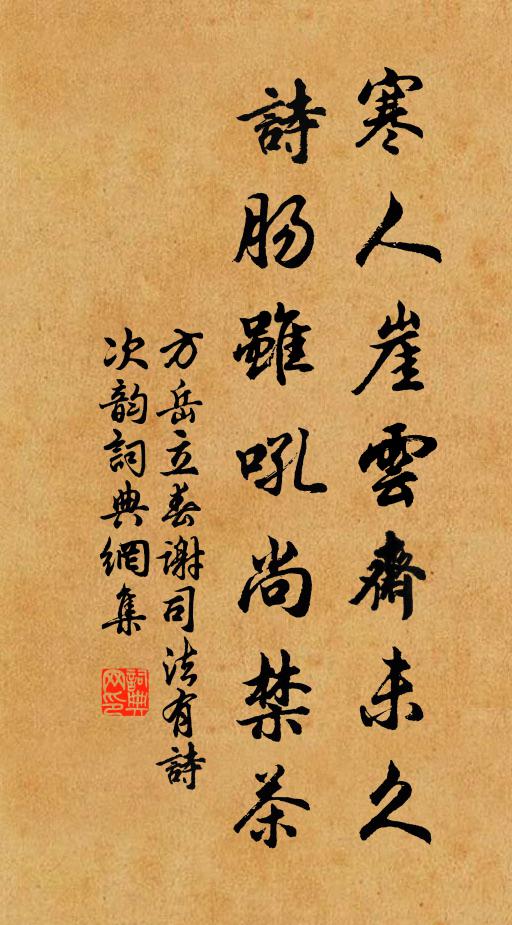 寒人崖雲齋未久
詩肠雖吼尚禁茶
方岳立春謝司法有詩
次韵詞典網集
詞典网印